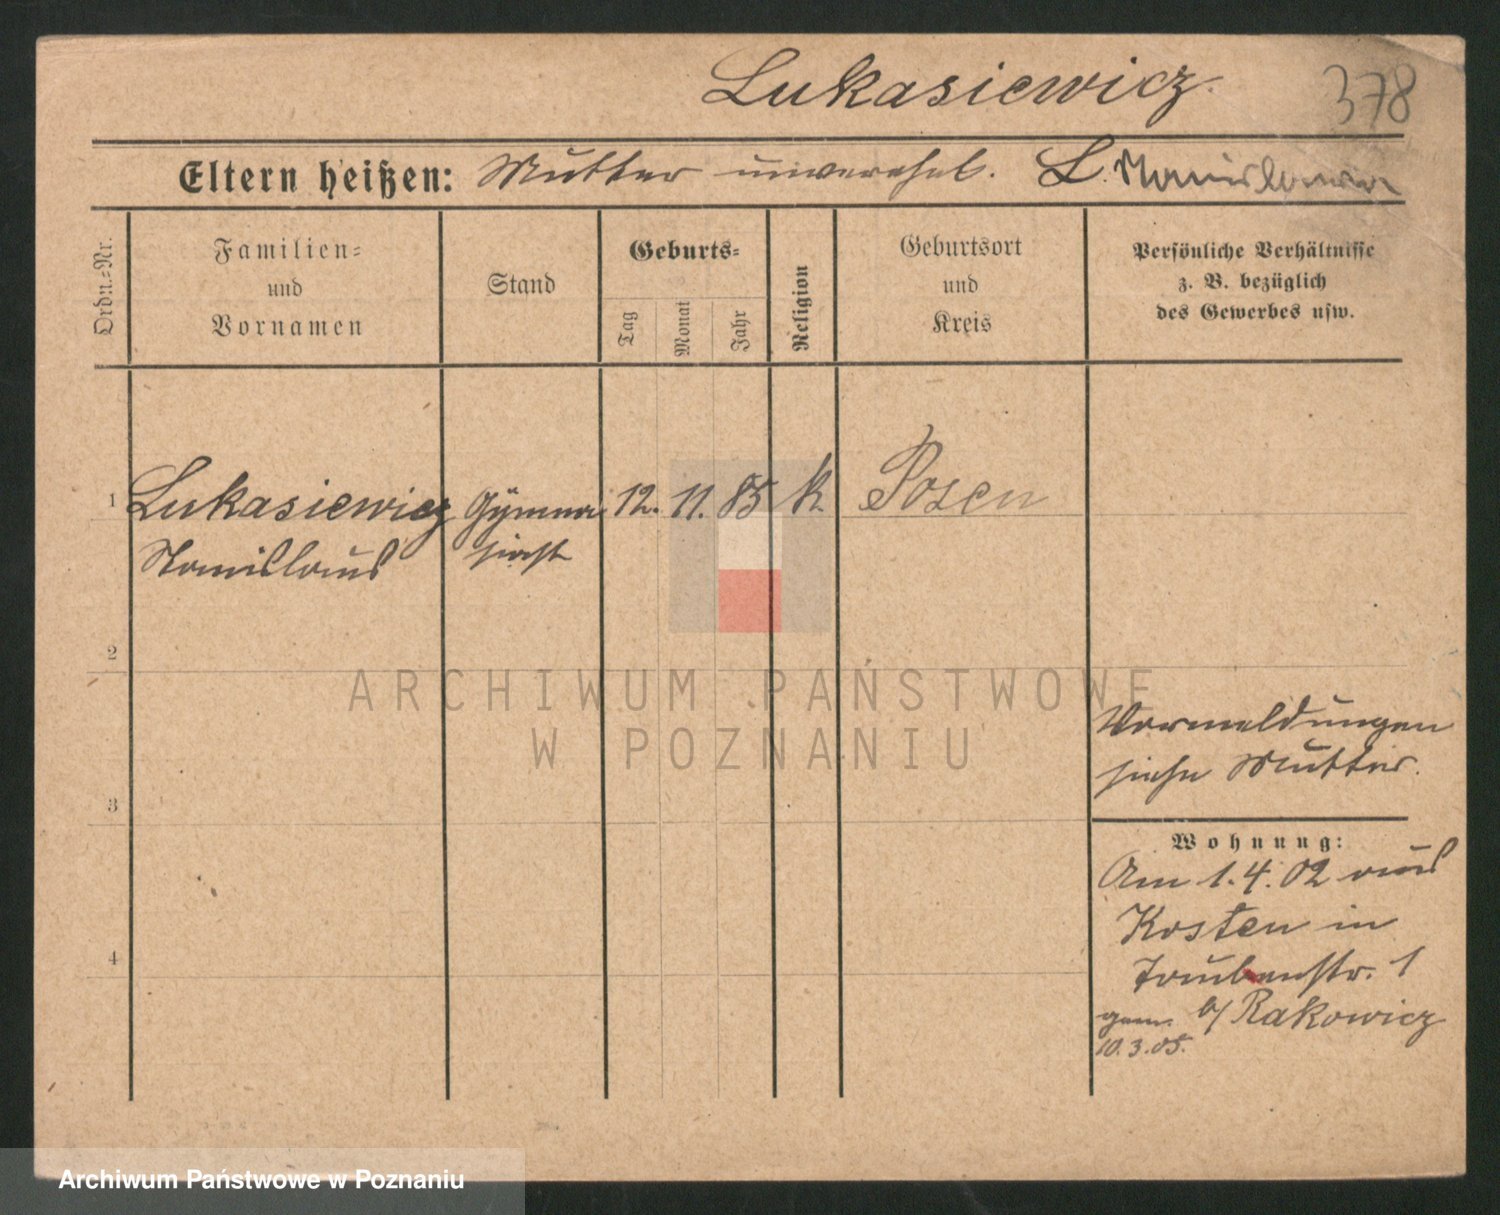 Lukasiewicz.
378
Eltern heißen: Mutter unverehel. L. Stanislawa
Ordn.-Nr.
Familien-
und
Vornamen
Stand
Geburts-
Tag
Monat
Jahr
Religion
Geburtsort
und
Kreis
Persönliche Verhältnisse
z. B. bezüglich
des Gewerbes usw.
1 Lukasiewicz Gymna 12. 11. 85 k. Posen
Stanislaus siast
2
ARCHIWUM PAŃSTWOWE
W POZNANIU
Vormeldungen
siehe Mutter.
3
Wohnung:
Am 1.4.02 aus
Kosten in
4
Taubenstr. 1
gem. b/ Rakowicz
10.3.05.
Archiwum Państwowe w Poznaniu